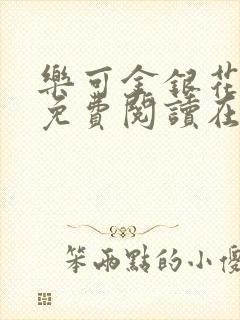 樂可金銀花
免費閱讀在
笨兩點的小傻